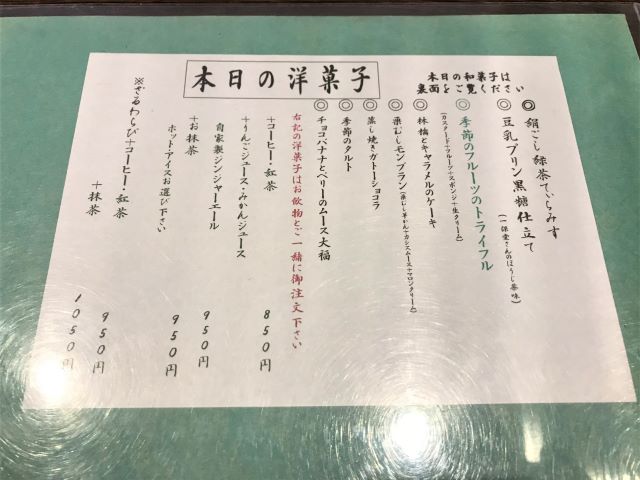 本日の洋菓子
本日の和菓子は
裏面をご覧ください
◎絹ごし緑茶てぃらみす
◎豆乳プリン黒糖仕立て
(一保堂さんのほうじ茶味)
◎季節のフルーツのトライフル
(カスタード+フルーツ+スポンジ+生クリーム)
◎林檎とキャラメルのケーキ
◎栗むしモンブラン(栗むし羊かん+カシスムース+マロンクリーム)
◎蒸し焼きガトーショコラ
◎季節のタルト
◎チョコバナナとベリーのムース大福
右記の洋菓子はお飲物とご一緒に御注文下さい
+コーヒー・紅茶 850円
+りんごジュース・みかんジュース
自家製ジンジャーエール 950円
+お抹茶 950円
ホット・アイスお選び下さい
※ざるわらび+コーヒー・紅茶 950円
+抹茶 1050円